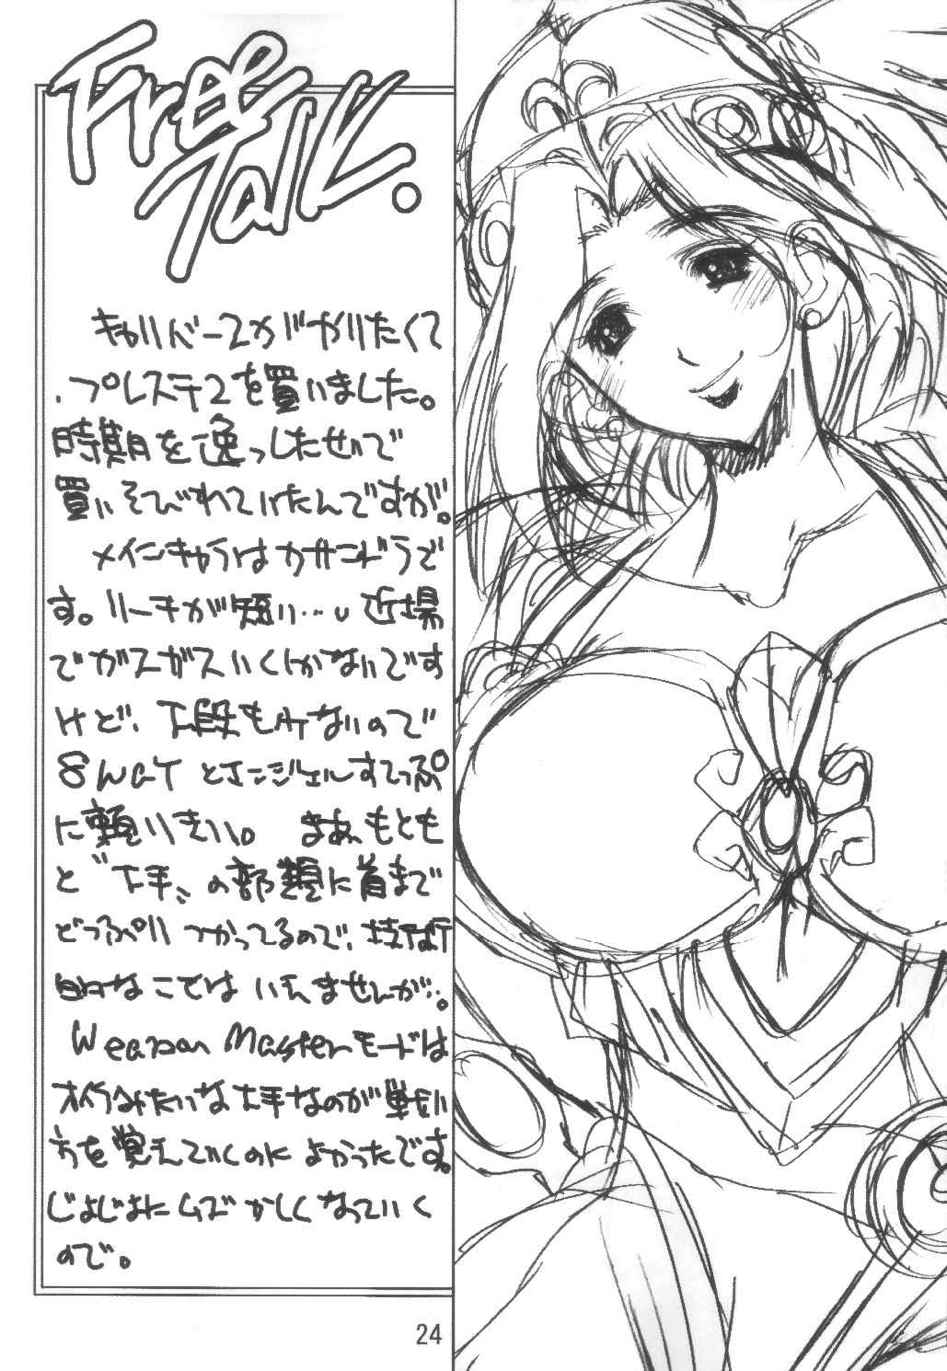 Free
Talk.
キャリバー2がやりたくて
、プレステ2を買いました。
時期を逸っしたせいで
買いそびれていたんですが。
メインキャラはカサンドラで
す。リーチが短い…近場
でガスガスいくしかないです
けど、下段もサバけないので
8WAY とエンジェルすてっぷ
に頼りきり。まあ、もとも
と〝下手〟の部類に首まで
どっぷり つかってるので、技術
的なことは いえませんが…。
Weapon Masterモードは
オイラみたいな下手なのが戦い
方を覚えていくのに よかったです。
じょじょに ムズかしくなっていく
ので。
24